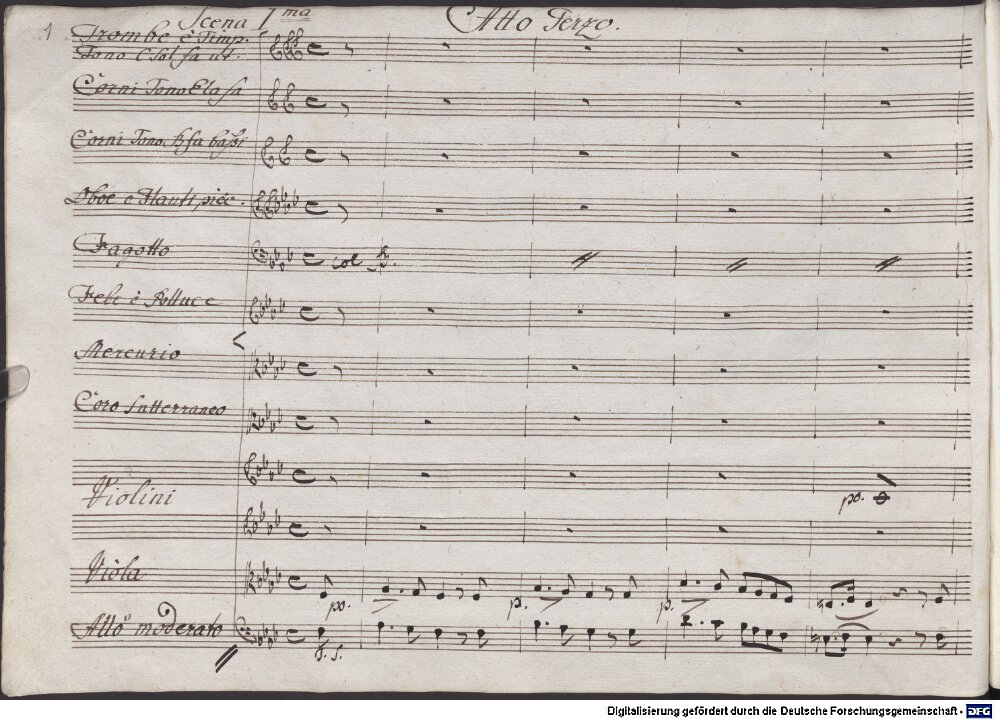 1
Scena 1ma
Atto Terzo.
Trombe è Timp.
Tono C Sol fa ut.
Corni Tono Elafa
Corni Tono bfa bassi
Oboe e Flauti picc.
Fagotto
col B.
Febe è Polluce
Mercurio
Coro sutterraneo
Violini
po.
Viola
po. p. p.
Allo moderato
Digitalisierung gefördert durch die Deutsche Forschungsgemeinschaft - DFG